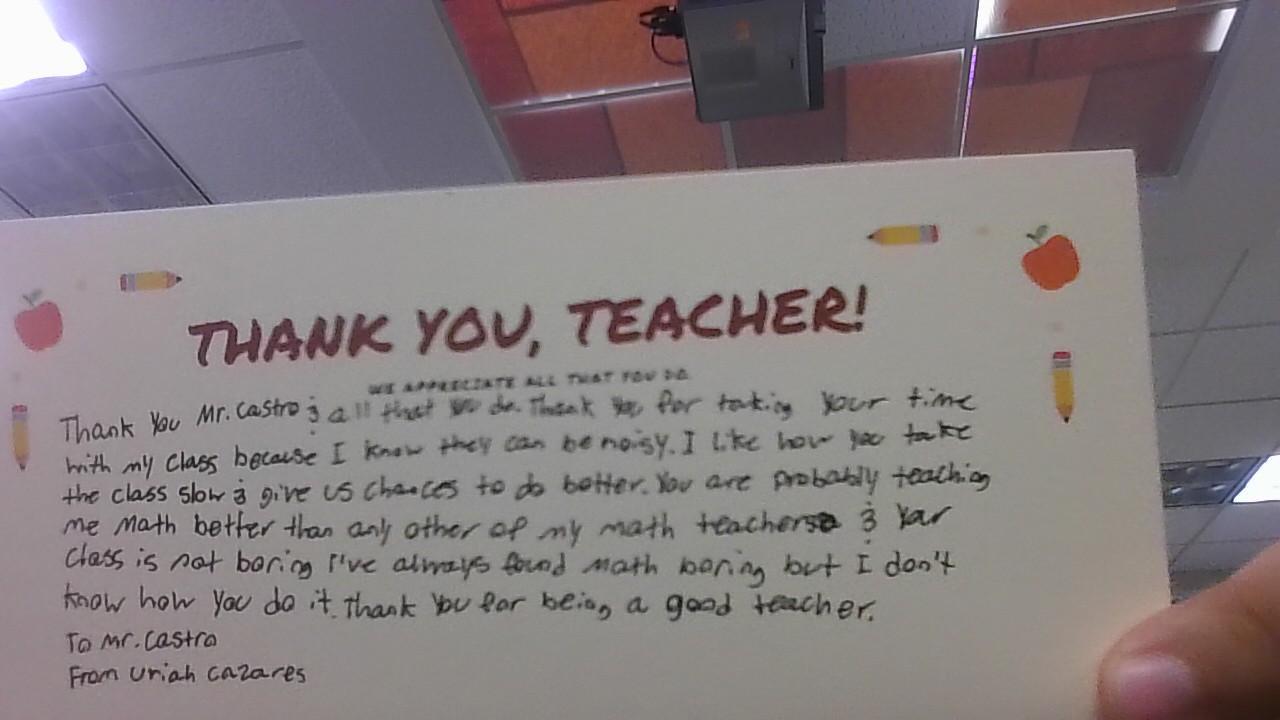 THANK YOU, TEACHER!
WE APPRECIATE ALL THAT YOU DO.
Thank You Mr. Castro & all that you do. Thank You for taking Your time
with my class because I know they can be noisy. I like how you take
the class slow & give us chances to do better. You are probably teaching
me math better than any other of my math teachers & Your
class is not boring I've always found math boring but I don't
know how you do it. Thank You for being a good teacher.
To Mr. Castro
From Uriah Cazares